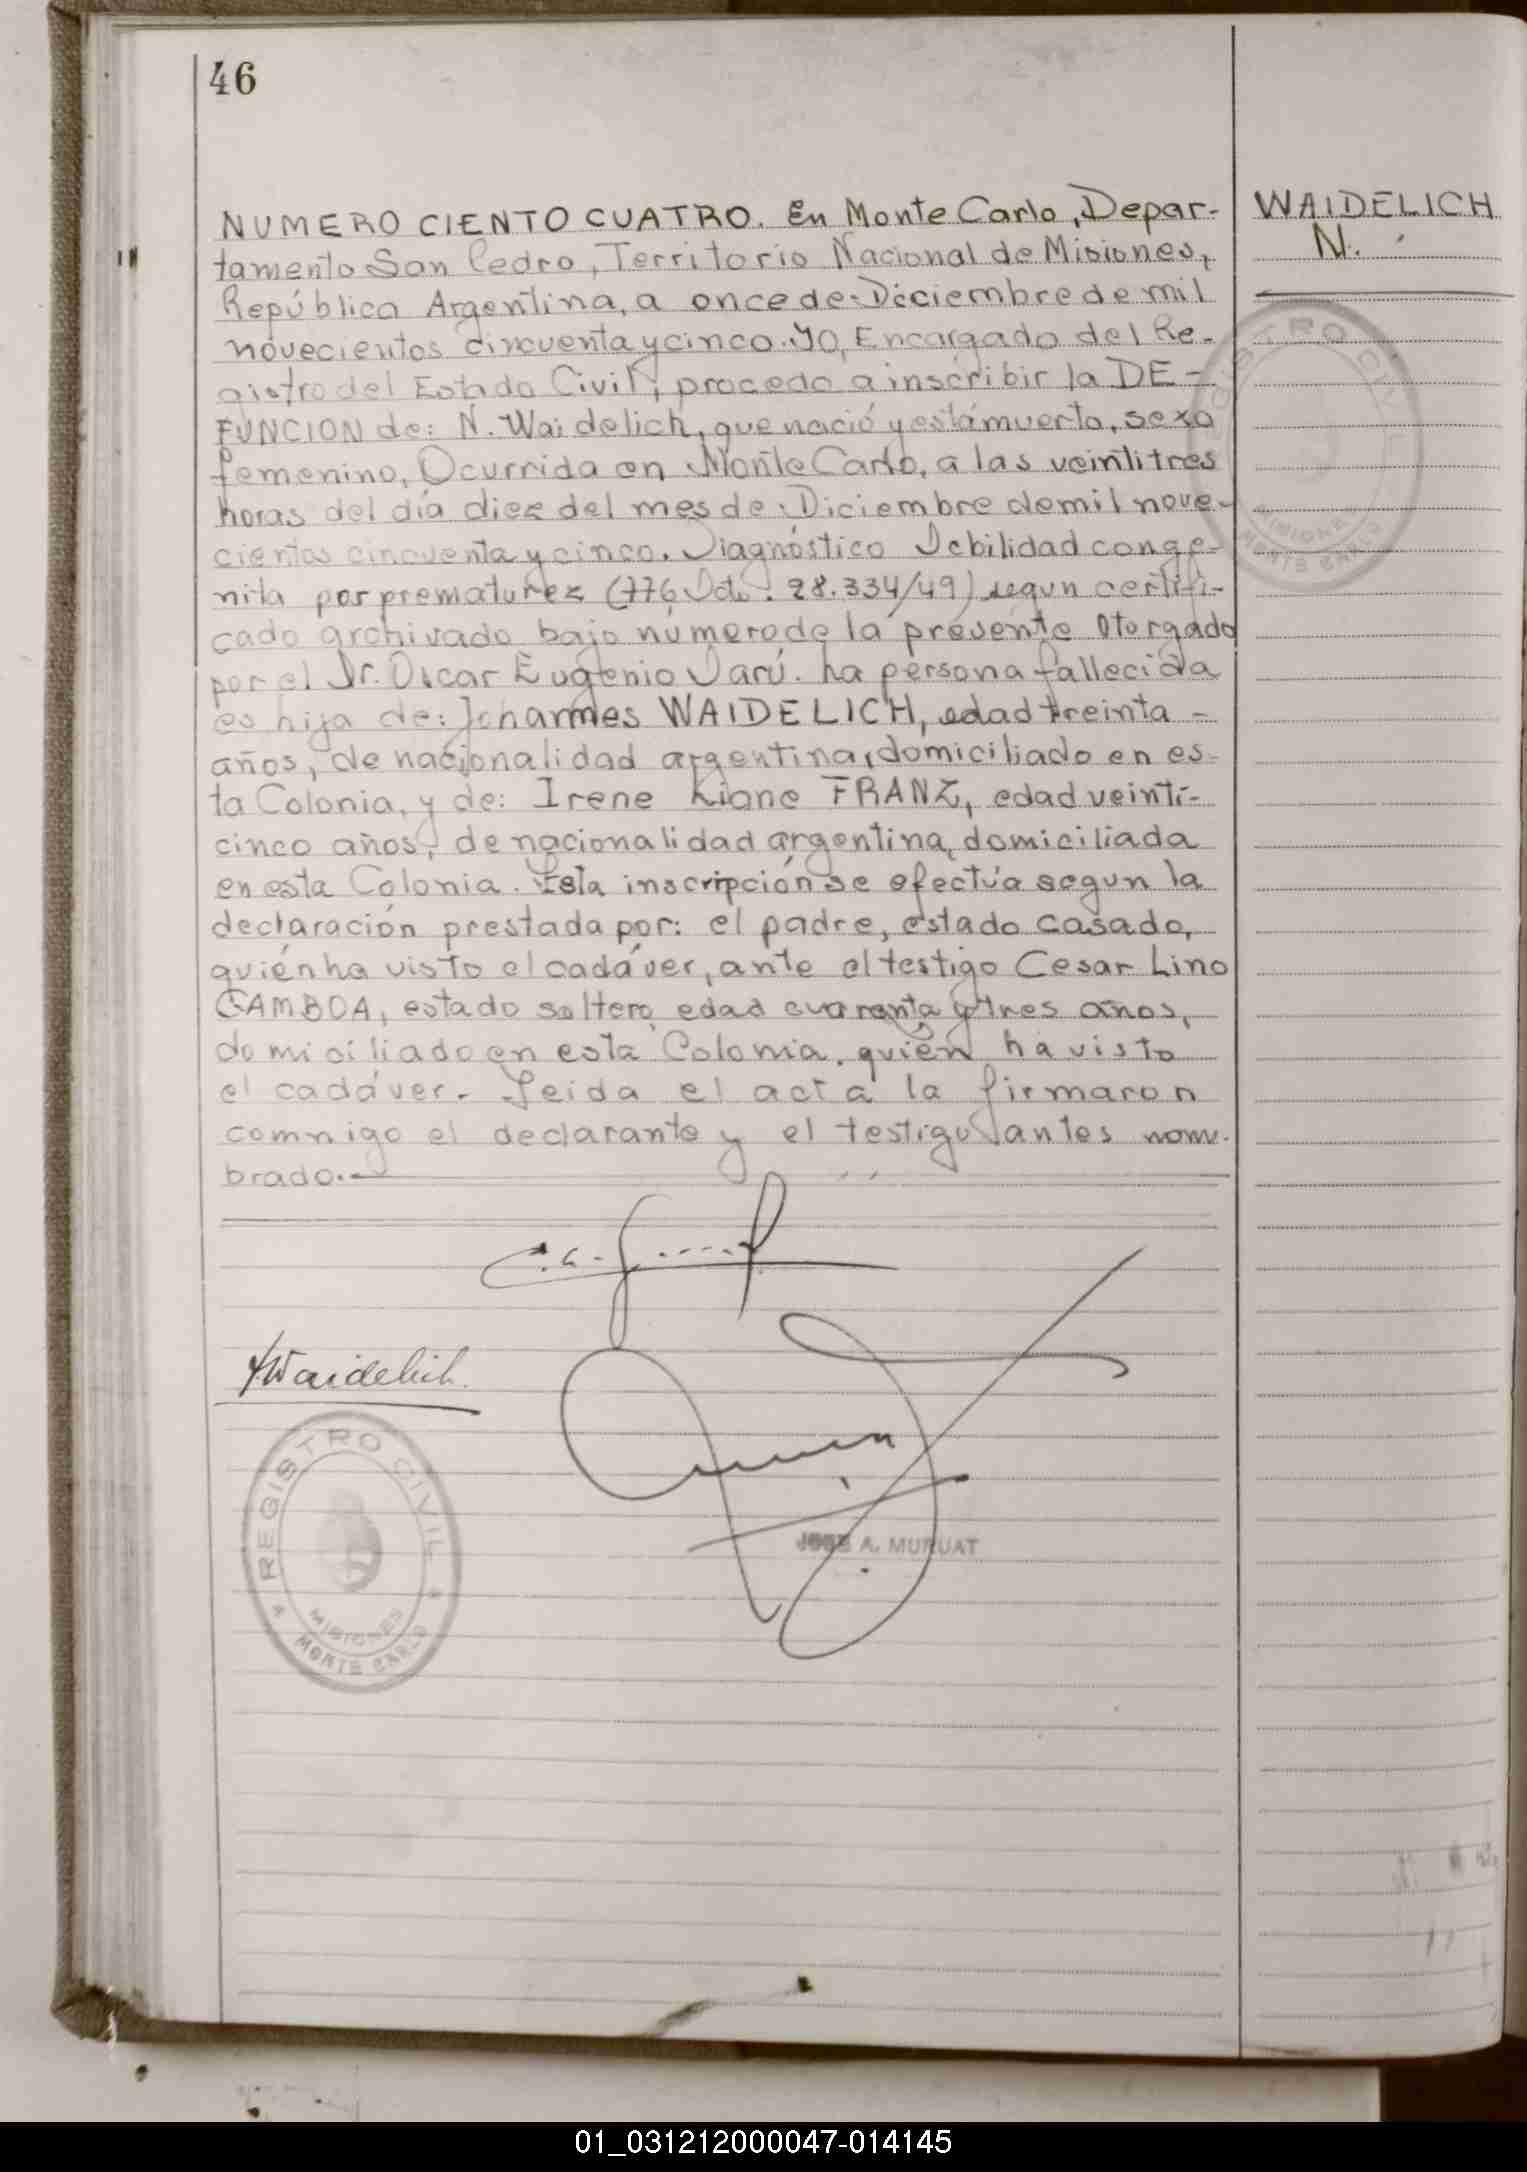 46
NUMERO CIENTO CUATRO. En Monte Carlo, Depar-
tamento San Pedro, Territorio Nacional de Misiones,
República Argentina, a once de Diciembre de mil
novecientos cincuenta y cinco. Yo, Encargado del Re-
gistro del Estado Civil, procedo a inscribir la DE-
FUNCION de: N. Waidelich, que nació y está muerta, sexo
femenino, Ocurrida en Monte Carlo, a las veintitres
horas del día diez del mes de Diciembre de mil nove-
cientos cincuenta y cinco. Diagnóstico Debilidad conge-
nita por prematurez (776 Dto. 28.334/49) segun certifi-
cado archivado bajo número de la presente Otorgado
por el Dr. Oscar Eugenio Darú. La persona fallecida
es hija de: Johannes WAIDELICH, edad treinta -
años, de nacionalidad argentina, domiciliado en es-
ta Colonia, y de: Irene Liane FRANZ, edad veinti-
cinco años, de nacionalidad argentina, domiciliada
en esta Colonia. Esta inscripción se efectúa segun la
declaración prestada por: el padre, estado casado,
quién ha visto el cadáver, ante el testigo Cesar Lino
GAMBOA, estado soltero, edad cuarenta y tres años,
domiciliado en esta Colonia. quién ha visto
el cadáver. - Leida el acta la firmaron
comnigo el declarante y el testigo antes nom-
brado.-
WAIDELICH
N.
REGISTRO CIVIL
MISIONES
MONTE CARLO
Waidelich.
REGISTRO CIVIL
MISIONES
MONTE CARLO
JOSE A. MURUAT
01_031212000047-014145